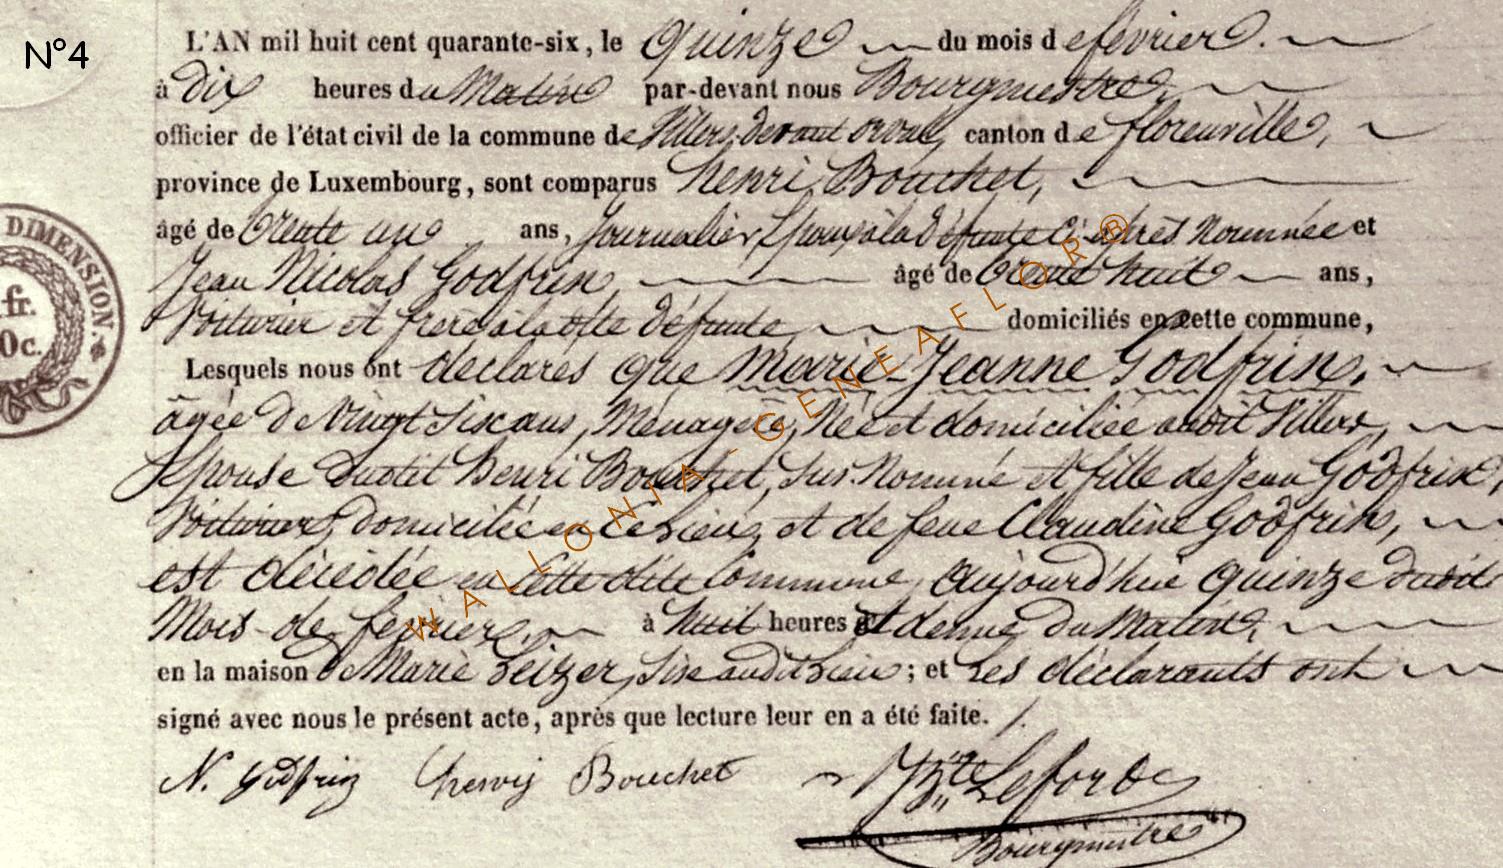 N°4
L'AN mil huit cent quarante-six, le quinze du mois de février.
à dix heures du Matin par-devant nous Bourgmestre,
officier de l'état civil de la commune de Villers devant orval, canton de florenville,
province de Luxembourg, sont comparus henri Bouchet,
âgé de trente un ans, Journalier, Epoux à la défunte Ci-après Nommée et
Jean Nicolas Godfrin, âgé de trente huit ans,
Voiturier et frère à la dtte défunte, domiciliés en cette commune,
Lesquels nous ont déclarés que Marie-Jeanne Godfrin,
âgée de Vingt Six ans, Ménagère, Née et domiciliée audit Villers,
Epouse dudit henri Bouchet, Sus-Nommé et fille de Jean Godfrin,
Voiturier, domicilié en ce Lieu, et de feue Claudine Godfrin,
est décédée en cette dite Commune, aujourd'hui quinze dudit
Mois de février, à huit heures et demie du Matin,
en la maison de Marie Leizer, Sise audit Lieu ; et Les déclarants ont
signé avec nous le présent acte, après que lecture leur en a été faite.
DIMENSION.
fr.
0c.
N. Godfrin Bouchet Leforte
Bourgmestre
WALLONIA-GENEAFLOR®